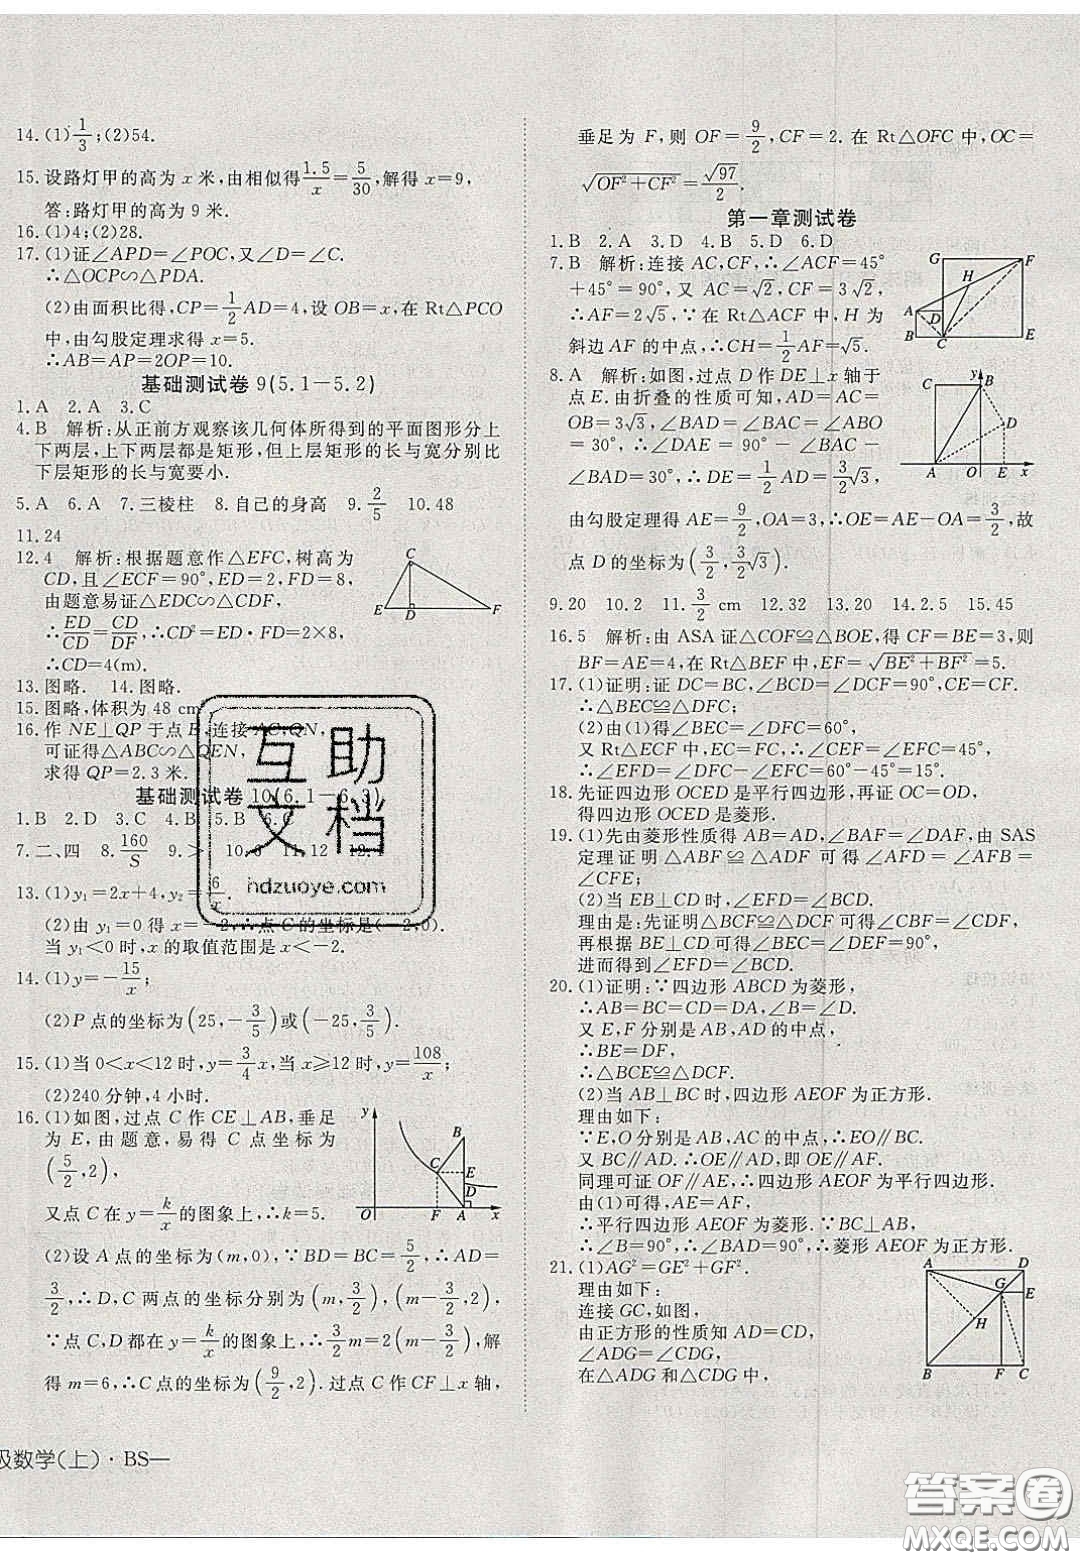 14.(1)1/3;(2)54.
15.设路灯甲的高为 x 米,由相似得1.5/x=5/30,解得 x=9,
答:路灯甲的高为 9 米.
16.(1)4;(2)28.
17.(1)证∠APD=∠POC,又∵∠D=∠C.
∴△OCP∽△PDA.
(2)由面积比得,CP=1/2AD=4,设 OB=x,在 Rt△PCO
中,由勾股定理求得 x=5.
∴AB=AP=2OP=10.
基础测试卷 9(5.1-5.2)
1.A 2.A 3.C
4.B 解析:从正前方观察该几何体所得到的平面图形分上
下两层,上下两层都是矩形,但上层矩形的长与宽分别比
下层矩形的长与宽要小.
5.A 6.A 7.三棱柱 8.自己的身高 9.2/5 10.48
11.24
12.4 解析:根据题意作△EFC,树高为
CD,且∠ECF=90°,ED=2,FD=8,
由题意易证△EDC∽△CDF,
∴ED/CD=CD/DF,∴CD²=ED·FD=2×8,
∴CD=4(m).
C
E D F
13.图略. 14.图略.
15.图略,体积为 48 cm
16.作 NE⊥QP 于点 E,连接 AC,QN,
可证得△ABC∽△QEN,
求得 QP=2.3 米.
基础测试卷 10(6.1-6.3)
1.B 2.D 3.C 4.B 5.B 6.C
7.二、四 8.160/S 9.> 10.6 11.12 12.
13.(1)y₁=2x+4,y₂=6/x.
(2)由 y₁=0 得 x=-2,∴点 C 的坐标是(-2,0).
当 y₁<0 时,x 的取值范围是 x<-2.
14.(1)y=-15/x;
(2)P 点的坐标为(25,-3/5)或(-25,3/5).
15.(1)当 0<x<12 时,y=3/4x,当 x≥12 时,y=108/x;
(2)240 分钟,4 小时.
16.(1)如图,过点 C 作 CE⊥AB,垂足
为 E,由题意,易得 C 点坐标为
(5/2,2),
又点 C 在 y=k/x的图象上,∴k=5.
y
B
C E
D
O F A x
(2)设 A 点的坐标为(m,0),∵BD=BC=5/2,∴AD=
3/2,∴D,C 两点的坐标分别为(m,3/2),(m-3/2,2),
∵点 C,D 都在 y=k/x的图象上,∴3/2m=2(m-3/2),解
得 m=6,∴C 点的坐标为(9/2,2).过点 C 作 CF⊥x 轴,
级数学(上)·BS—
互助
文档
hdzuoye.com
垂足为 F,则 OF=9/2,CF=2.在 Rt△OFC 中,OC=
√(OF²+CF²)=√97/2.
第一章测试卷
1.B 2.A 3.D 4.B 5.D 6.D
7.B 解析:连接 AC,CF,∴∠ACF=45°
+45°=90°,又 AC=√2,CF=3√2,
∴AF=2√5,∵在 Rt△ACF 中,H 为
斜边 AF 的中点,∴CH=1/2AF=√5.
G F
H
A
D
B C E
8.A 解析:如图,过点 D 作 DE⊥x 轴于
点 E.由折叠的性质可知,AD=AC=
OB=3√3,∠BAD=∠BAC=∠ABO
=30°,∴∠DAE=90°-∠BAC-
∠BAD=30°,∴DE=1/2AD=3/2√3,
由勾股定理得 AE=9/2,OA=3,∴OE=AE-OA=3/2,故
点 D 的坐标为(3/2,3/2√3).
y
C B
D
A O E x
9.20 10.2 11.3/2 cm 12.32 13.20 14.2.5 15.45
16.5 解析:由 ASA 证△COF≌△BOE,得 CF=BE=3,则
BF=AE=4,在 Rt△BEF 中,EF=√(BE²+BF²)=5.
17.(1)证明:证 DC=BC,∠BCD=∠DCF=90°,CE=CF.
∴△BEC≌△DFC;
(2)由(1)得∠BEC=∠DFC=60°,
又 Rt△ECF 中,EC=FC,∴∠CEF=∠EFC=45°,
∴∠EFD=∠DFC-∠EFC=60°-45°=15°.
18.先证四边形 OCED 是平行四边形,再证 OC=OD,
得四边形 OCED 是菱形.
19.(1)先由菱形性质得 AB=AD,∠BAF=∠DAF,由 SAS
定理证明△ABF≌△ADF 可得∠AFB=∠AFD=
∠CFE;
(2)当 EB⊥CD 时,∠EFD=∠BCD.
理由是:先证明△BCF≌△DCF 可得∠CBF=∠CDF,
再根据 BE⊥CD 可得∠BEC=∠DEF=90°,
进而得到∠EFD=∠BCD.
20.(1)证明:∵四边形 ABCD 为菱形,
∴AB=BC=CD=DA,∠B=∠D.
又 E,F 分别是 AB,AD 的中点,
∴BE=DF,
∴△BCE≌△DCF.
(2)当 AB⊥BC 时,四边形 AEOF 为正方形.
理由如下:
∵E,O 分别是 AB,AC 的中点,∴EO∥BC.
又 BC∥AD,∴OE∥AD,即 OE∥AF.
同理可证 OF∥AE,∴四边形 AEOF 为平行四边形.
由(1)可得,AE=AF,
∴平行四边形 AEOF 为菱形.∵BC⊥AB,
∴∠B=90°,∴∠BAD=90°,∴菱形 AEOF 为正方形.
21.(1)AG²=GE²+GF².
理由如下:
连接 GC,如图,
由正方形的性质知 AD=CD,
∠ADG=∠CDG,
在△ADG 和△CDG 中,
A D
G E
H
B F C
答案圈
MXQE.COM